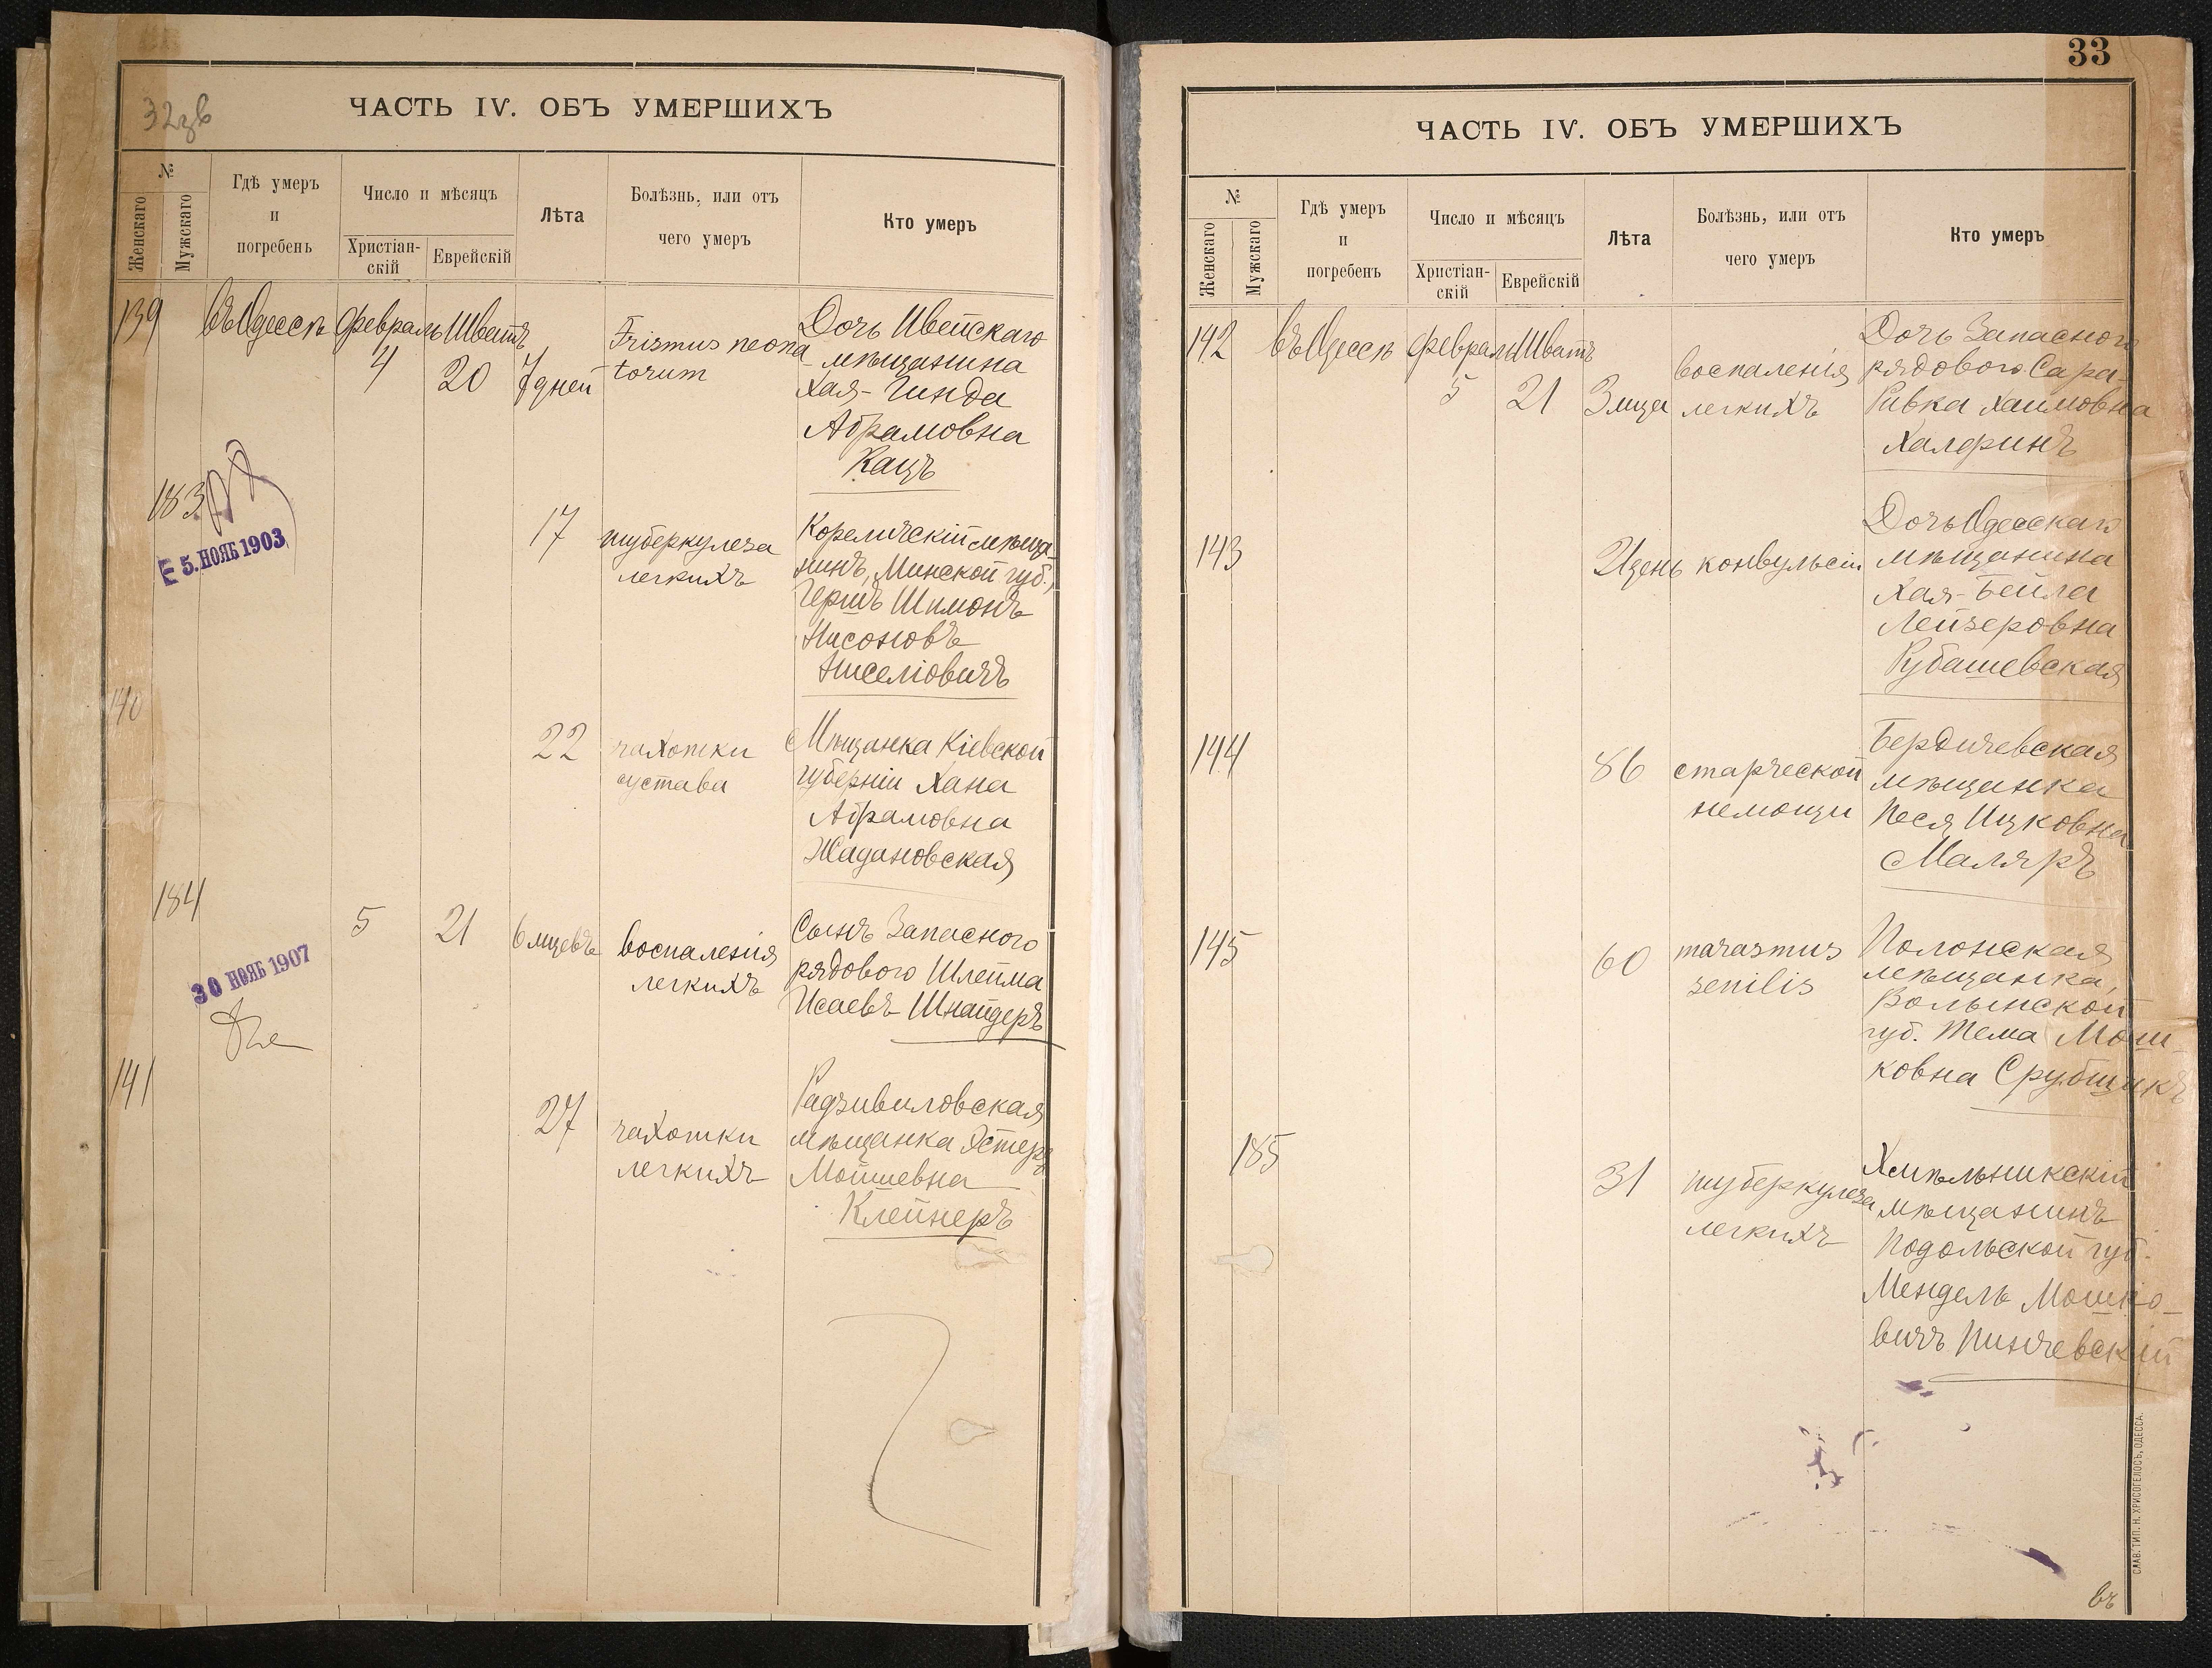 32зв
ЧАСТЬ IV. ОБЪ УМЕРШИХЪ
№
Женскаго
Мужскаго
Гдѣ умеръ
и
погребенъ
Число и мѣсяцъ
Христіан-
скій
Еврейскій
Лѣта
Болѣзнь, или отъ
чего умеръ
Кто умеръ
139
въ Одессѣ
февраль
4
Шватъ
20
7 дней
Trismus neona-
torum
Дочь Ивейскаго
мѣщанина
Хая-Гинда
Абрамовна
Кацъ
183
5. НОЯБ 1903
17
туберкулеза
легкихъ
Кореличскій мѣща-
нинъ, Минской губ.,
Гершъ Шимонъ
Нисоновъ
Ниселіовичъ
140
22
чахотки
сустава
Мѣщанка Кіевской
губерніи Хана
Абрамовна
Жадановская
184
30 НОЯБ 1907
5
21
6 мцевъ
воспаленія
легкихъ
Сынъ Запасного
рядового Шлейма
Исаевъ Шнайдеръ
141
27
чахотки
легкихъ
Радзивиловская
мѣщанка Эстеръ
Мошевна
Клейнеръ
33
ЧАСТЬ IV. ОБЪ УМЕРШИХЪ
№
Женскаго
Мужскаго
Гдѣ умеръ
и
погребенъ
Число и мѣсяцъ
Христіан-
скій
Еврейскій
Лѣта
Болѣзнь, или отъ
чего умеръ
Кто умеръ
142
въ Одессѣ
февраль
5
Шватъ
21
3 мца
воспаленія
легкихъ
Дочь Запасного
рядового Сара-
Ривка Хаимовна
Халфинъ
143
21 день
конвульсіи
Дочь Одесскаго
мѣщанина
Хая-Бейла
Лейзеровна
Рубашевская
144
86
старческой
немощи
Бердичевская
мѣщанка
Песя Ицковна
Маляръ
145
60
marasmus
senilis
Полонская
мѣщанка,
Волынской
губ. Тема Мош-
ковна Срубщикъ
185
31
туберкулеза
легкихъ
Хмѣльникскій
мѣщанинъ
Подольской губ.
Мендель Мошко-
вичъ Пинчевскій
СЛАВ. ТИП. Н. ХРИСОГЕЛОСЪ, ОДЕССА.
въ